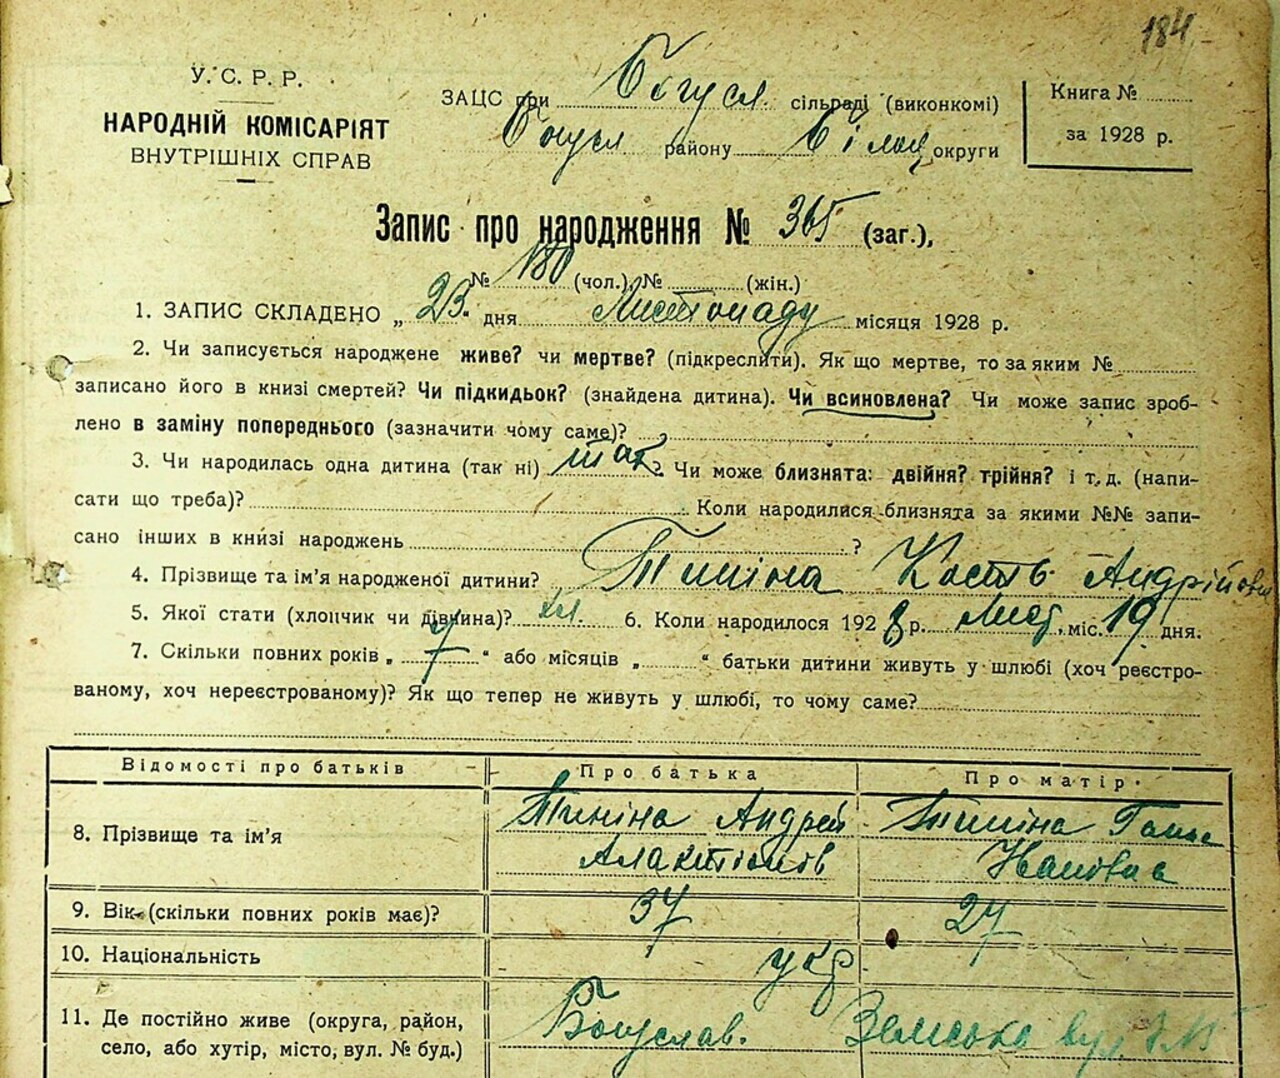 184
У. С. Р. Р.
НАРОДНІЙ КОМІСАРІЯТ
ВНУТРІШНІХ СПРАВ
ЗАЦС при Богусл. сільраді (виконкомі)
Богусл району Білоц округи
Книга №
за 1928 р.
Запис про народження № 365 (заг.),
№ 180 (чол.) № (жін.)
1. ЗАПИС СКЛАДЕНО „ 23. дня Листопаду місяця 1928 р.
2. Чи записується народжене живе? чи мертве? (підкреслити). Як що мертве, то за яким №
записано його в книзі смертей? Чи підкидьок? (знайдена дитина). Чи всиновлена? Чи може запис зроб-
лено в заміну попереднього (зазначити чому саме)?
3. Чи народилась одна дитина (так ні) так? Чи може близнята: двійня? трійня? і т. д. (напи-
сати що треба)? Коли народилися близнята за якими №№ запи-
сано інших в книзі народжень ?
4. Прізвище та ім’я народженої дитини? Тиміна Кость Андрійов
5. Якої стати (хлопчик чи дівчина)? хл. 6. Коли народилося 1928 р. Лист. міс. 19 дня.
7. Скільки повних років „ 7 “ або місяців „ “ батьки дитини живуть у шлюбі (хоч реєстро-
ваному, хоч нереєстрованому)? Як що тепер не живуть у шлюбі, то чому саме?
Відомості про батьків Про батька Про матір
8. Прізвище та ім’я Андрей Ганна
Івановна
9. Вік (скільки повних років має)? 37 27
10. Національність укр
11. Де постійно живе (округа, район,
село, або хутір, місто, вул. № буд.) Богуслав. Земська вул.